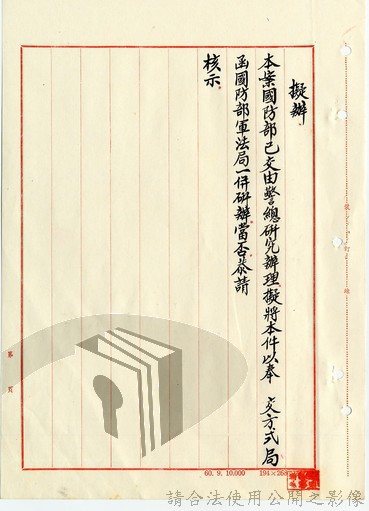 擬辦
本案國防部已交由警總研究辦理擬將本件以奉 交方式局
函國防部軍法局一併研辦當否恭請
核示
裝
訂
線
第 頁
60. 9. 10,000 194×268
請合法使用公開之影像